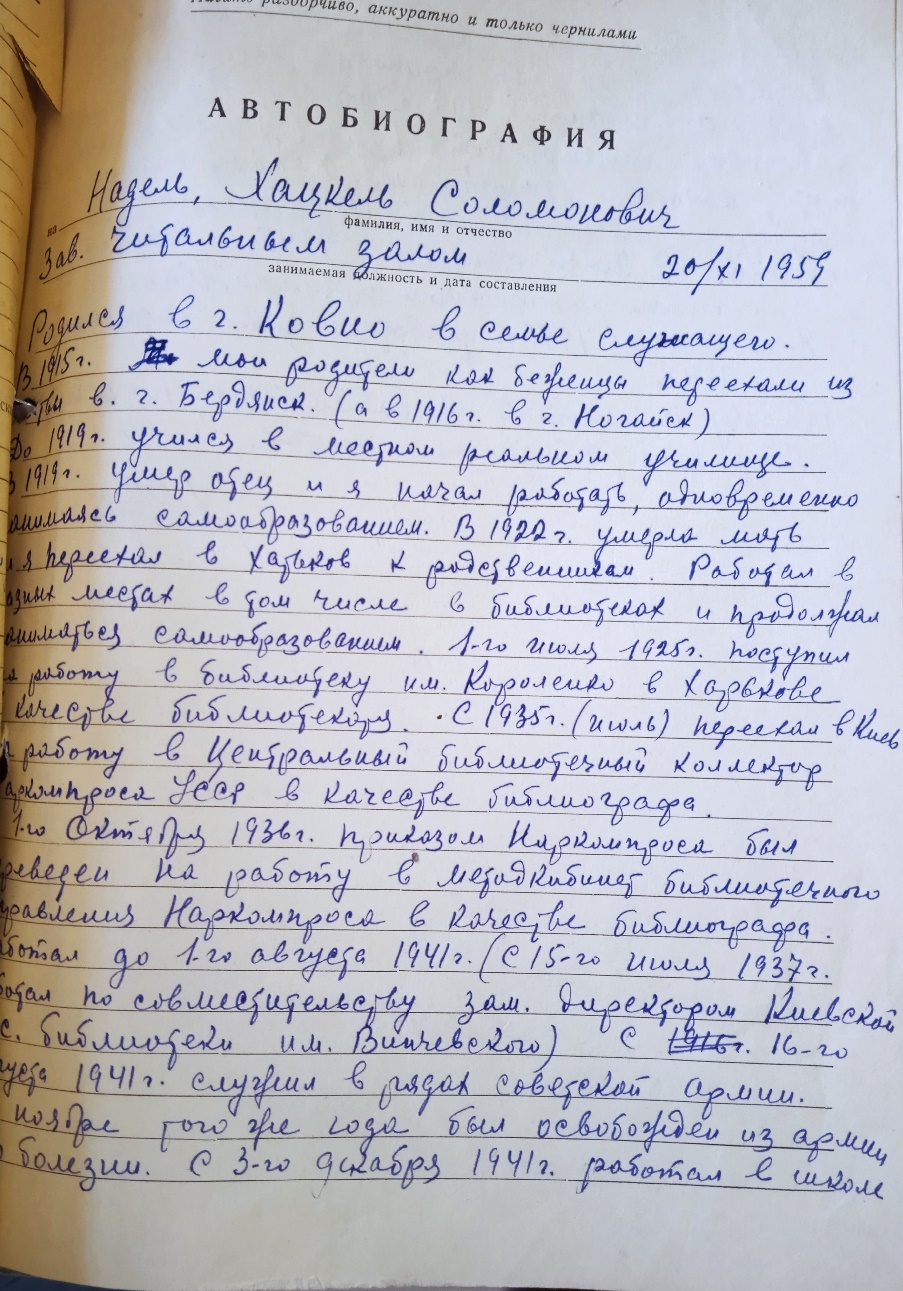 разборчиво, аккуратно и только чернилами
АВТОБИОГРАФИЯ
на Надель, Хацкель Соломонович
фамилия, имя и отчество
Зав. читальным залом 20/XI 1959
занимаемая должность и дата составления
Родился в г. Ковно в семье служащего.
В 1915г. мои родители как беженцы переехали из
в. г. Бердянск. (а в 1916г. в г. Ногайск)
До 1919г. учился в местном реальном училище.
В 1919г. умер отец и я начал работать, одновременно
анимаясь самообразованием. В 1922г. умерла мать
и я переехал в Харьков к родственникам. Работал в
азных местах в том числе в библиотеках и продолжал
аниматься самообразованием. 1-го июля 1925г. поступил
а работу в библиотеку им. Короленко в Харькове
качестве библиотекаря. С 1935г. (июль) переехал в Киев
а работу в Центральный библиотечный коллектор
аркомпроса УССР в качестве библиографа.
1-го Октября 1936г. приказом Наркомпроса был
реведен на работу в методкабинет библиотечного
правления Наркомпроса в качестве библиографа.
аботал до 1-го августа 1941г. (С 15-го июля 1937г.
ботал по совместительству зам. директором Киевской
с. библиотеки им. Винчевского) С 16-го
густа 1941г. служил в рядах советской армии.
ноябре того же года был освобожден из армии
о болезни. С 3-го декабря 1941г. работал в школе